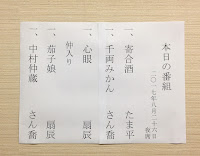 本日の番組
二〇一七年八月二十六日
夜席
一、寄合酒 たま平
一、千両みかん さん喬
一、心眼 扇辰
仲入り
一、茄子娘 扇辰
一、中村仲蔵 さん喬